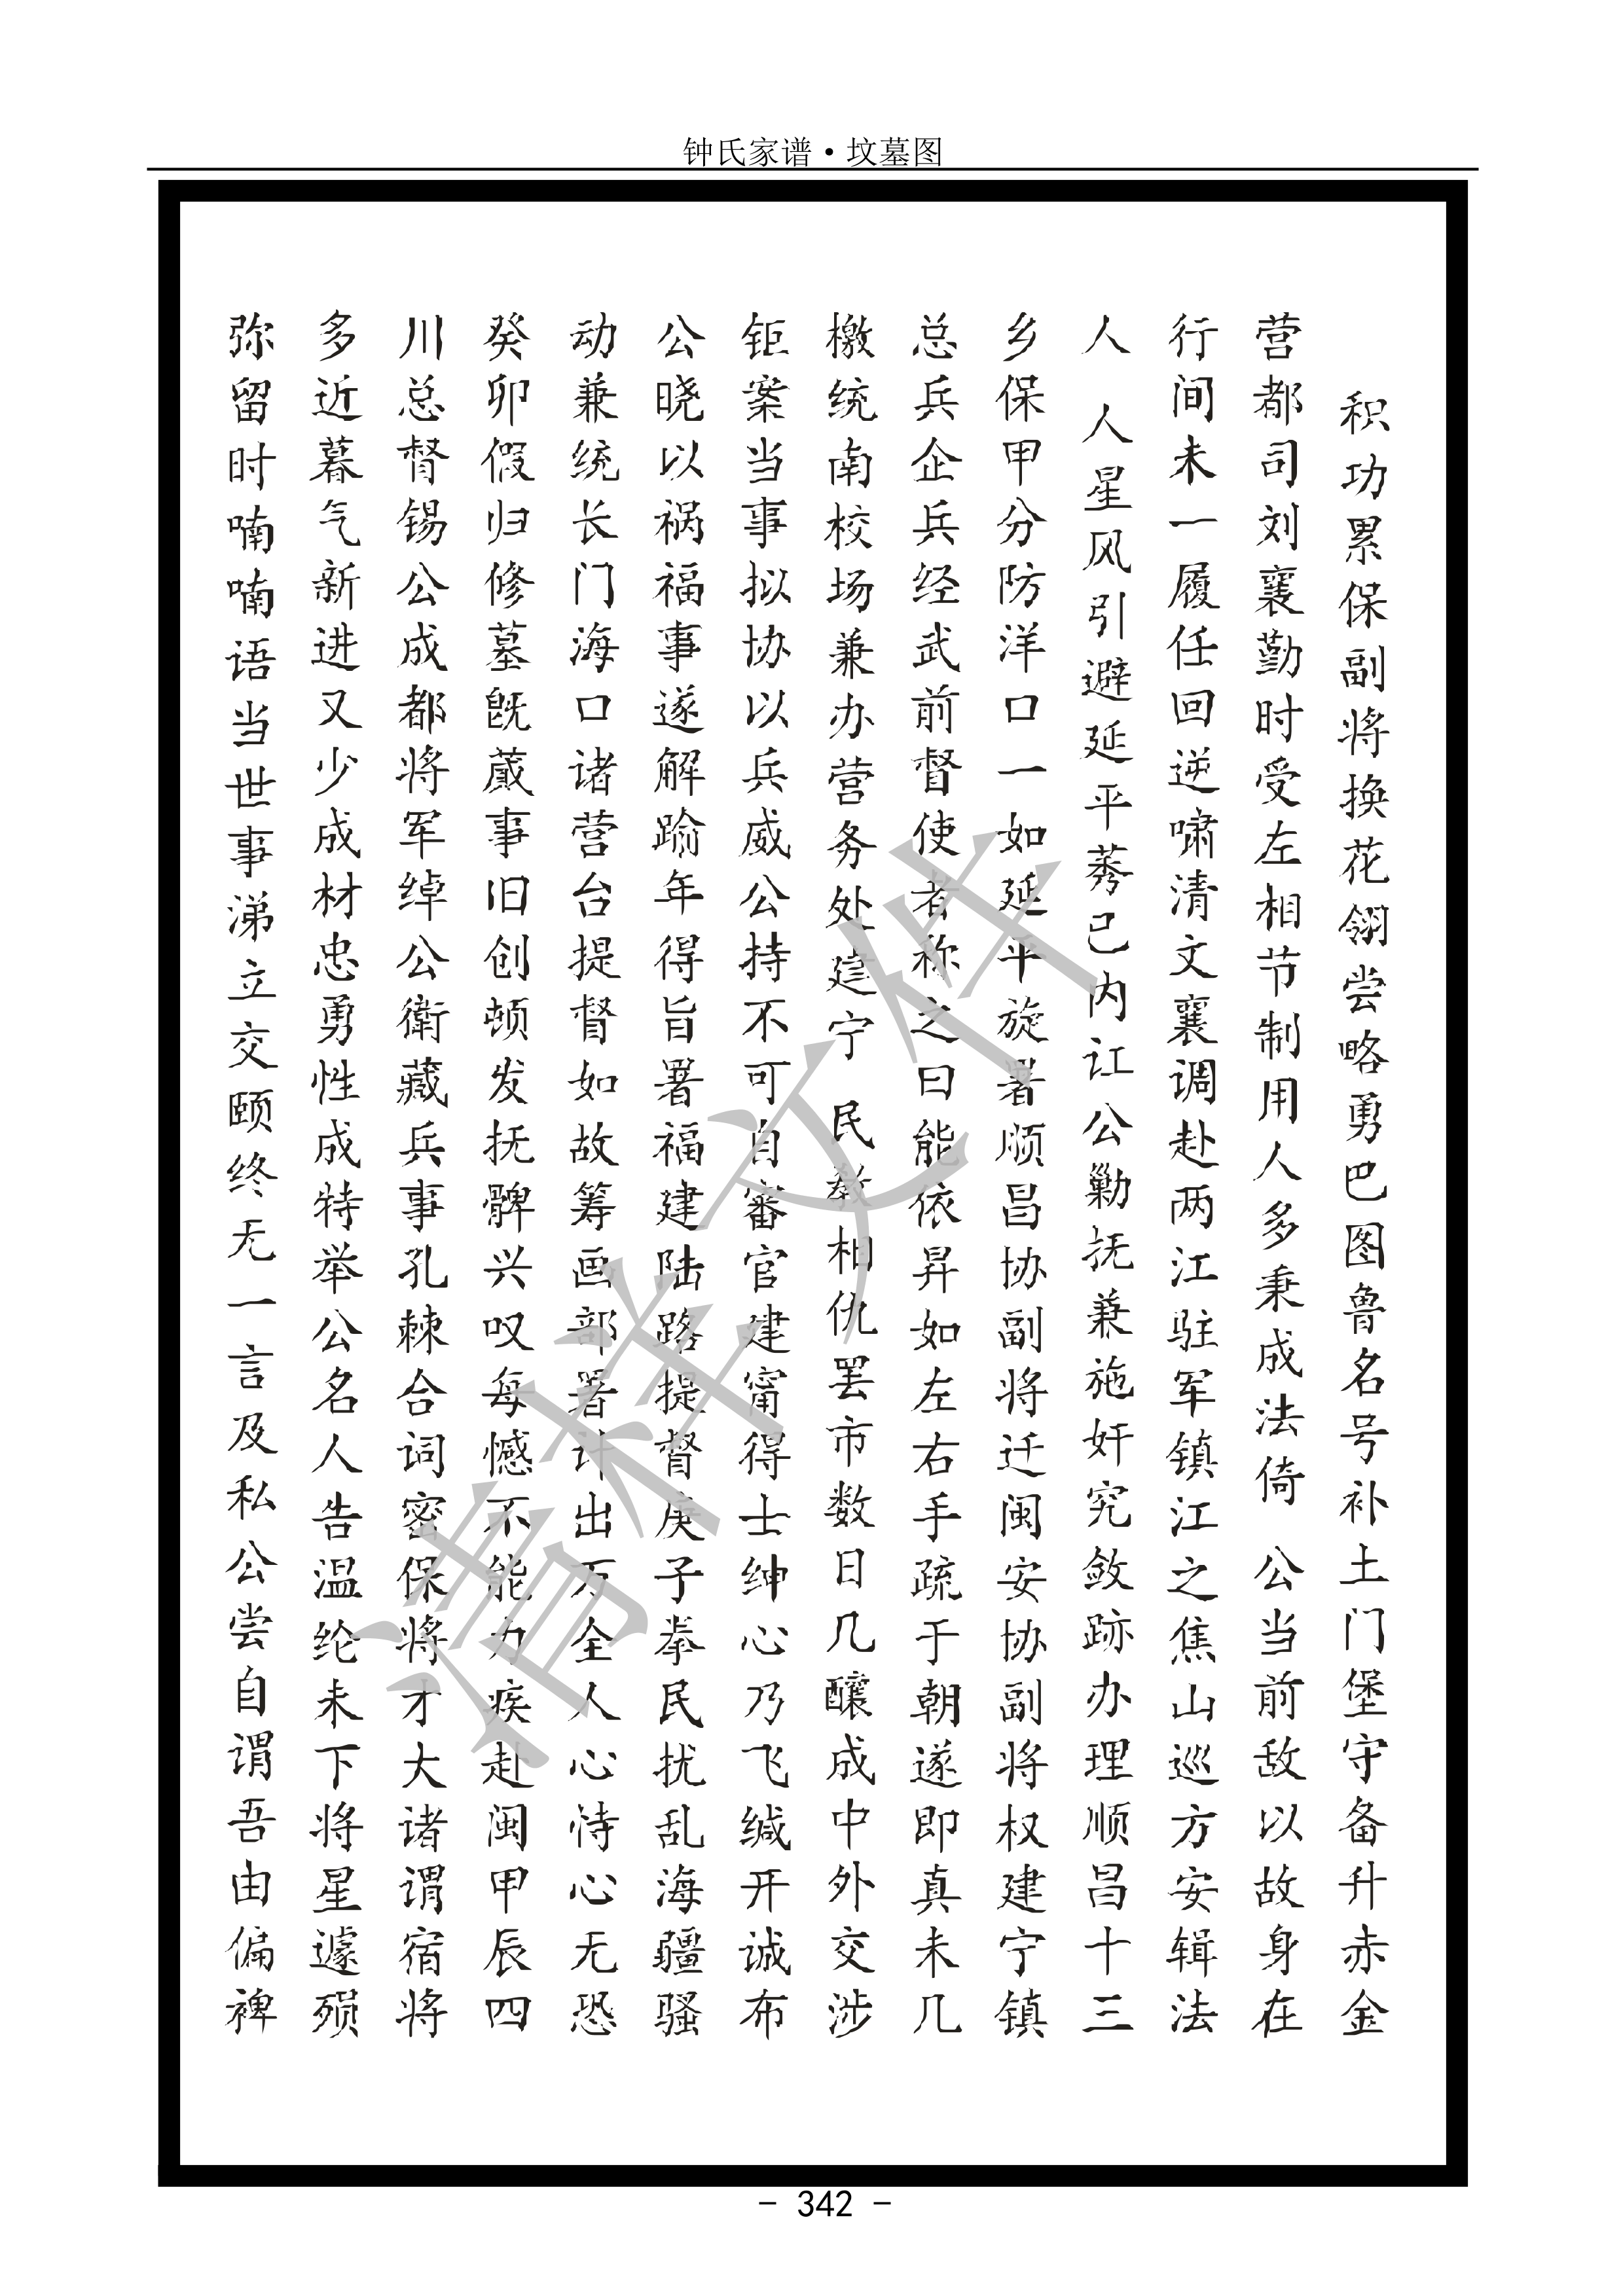 钟氏家谱·坟墓图
积功累保副将换花翎尝略勇巴图鲁名号补土门堡守备升赤金
营都司刘襄勤时受左相节制用人多秉成法倚 公当前敌以故身在
行间未一履任回逆啸清文襄调赴两江驻军镇江之焦山巡方安辑法
人 人星风引避延平莠己内讧公勦抚兼施奸究敛跡办理顺昌十三
乡保甲分防洋口一如延平旋署顺昌协副将迁闽安协副将权建宁镇
总兵企兵经武前督使者称之曰能依昇如左右手疏于朝遂即真未几
檄统南校场兼办营务处建宁 民教相仇罢市数日几釀成中外交涉
钜案当事拟协以兵威公持不可自審官建甯得士绅心乃飞缄开诚布
公晓以祸福事遂解踰年得旨署福建陆路提督庚子拳民扰乱海疆骚
动兼统长门海口诸营台提督如故筹画部署计出万全人心恃心无恐
癸卯假归修墓既蒇事旧创顿发抚髀兴叹每憾不能力疾赴闽甲辰四
川总督锡公成都将军绰公衛藏兵事孔棘合词密保将才大诸谓宿将
多近暮气新进又少成材忠勇性成特举公名人告温纶未下将星遽殒
弥留时喃喃语当世事涕立交颐终无一言及私公尝自谓吾由偏裨
- 342 -
清样文件